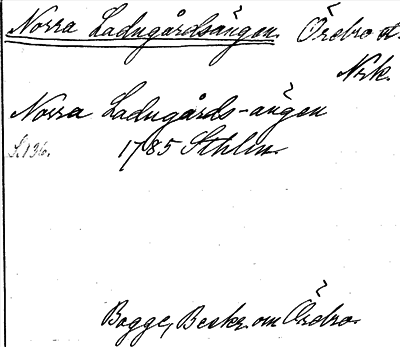 Norra Ladugårdsängen. Örebro st.
Nrk.
Norra Ladugårds-ängen
S. 136. 1785 Sthlm.
Bagge, Beskr. om Örebro.